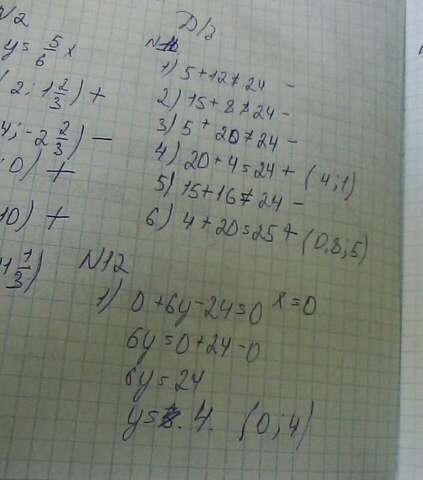 N2
y = 5/6 x
2; 1 2/3) +
4; -2 2/3) -
; 0) +
10) +
1/3)
Д/з
N11
1) 5 + 12 ≠ 24 -
2) 15 + 8 ≠ 24 -
3) 5 + 20 ≠ 24 -
4) 20 + 4 = 24 + (4; 1)
5) 15 + 16 ≠ 24 -
6) 4 + 20 = 25 + (0,8; 5)
N12
1) 0 + 6y - 24 = 0 x = 0
6y = 0 + 24 - 0
6y = 24
y = 4. (0; 4)